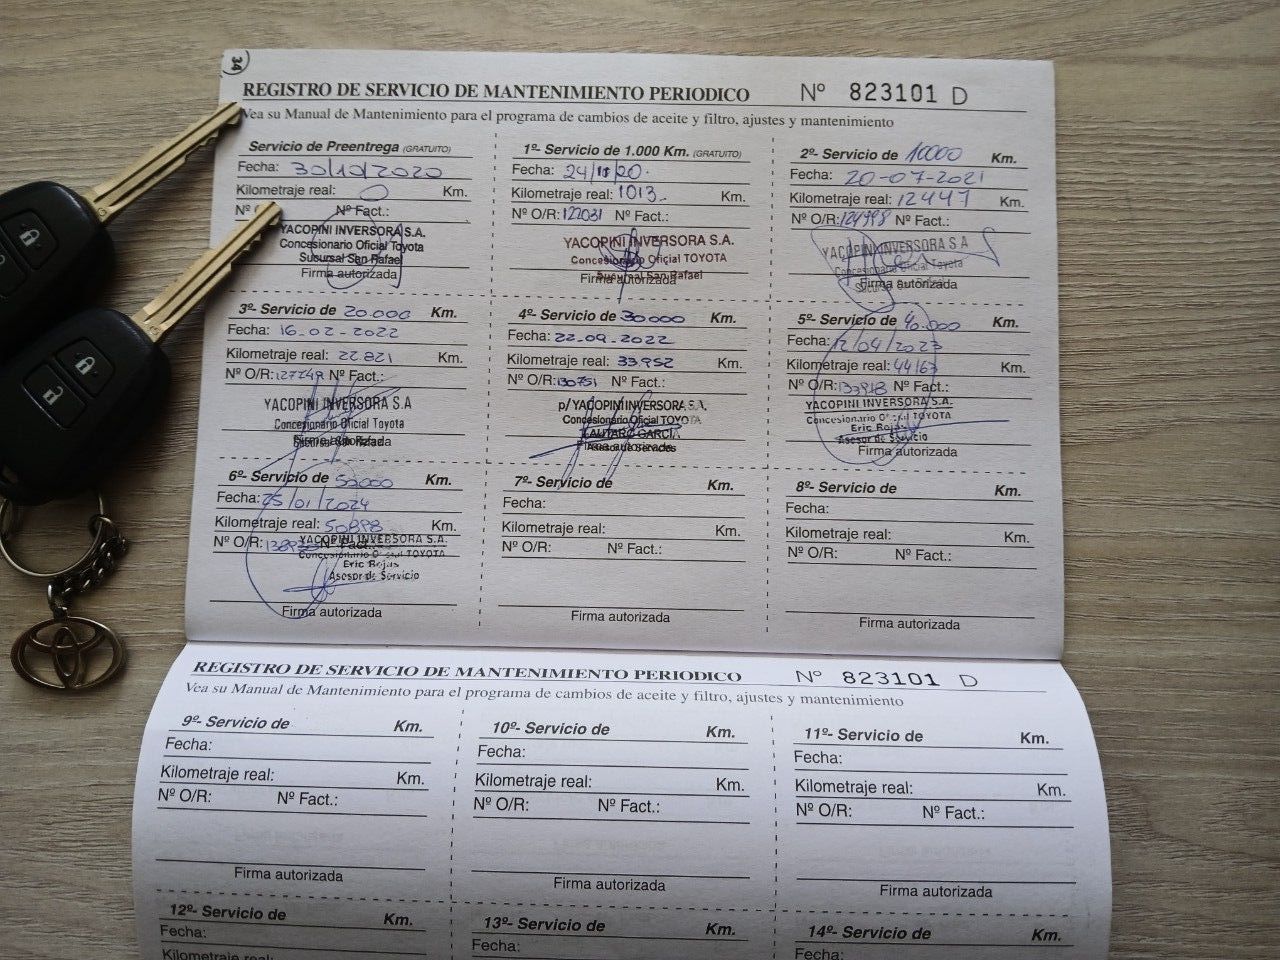 34
REGISTRO DE SERVICIO DE MANTENIMIENTO PERIODICO Nº 823101 D
Vea su Manual de Mantenimiento para el programa de cambios de aceite y filtro, ajustes y mantenimiento
Servicio de Preentrega (GRATUITO)
Fecha: 30/10/2020
Kilometraje real: 0 Km.
Nº Nº Fact.:
YACOPINI INVERSORA S.A.
Concesionario Oficial Toyota
Sucursal San Rafael
Firma autorizada
1º- Servicio de 1.000 Km. (GRATUITO)
Fecha: 24/11/20.
Kilometraje real: 1013. Km.
Nº O/R: 122031 Nº Fact.:
YACOPINI INVERSORA S.A.
Concesionario Oficial TOYOTA
Sucursal San Rafael
Firma autorizada
2º- Servicio de 10000 Km.
Fecha: 20-07-2021
Kilometraje real: 12447 Km.
Nº O/R: 124998 Nº Fact.:
YACOPINI INVERSORA S A
Concesionario Oficial Toyota
Firma autorizada
3º- Servicio de 20.000 Km.
Fecha: 16-02-2022
Kilometraje real: 22.821 Km.
Nº O/R: 127249 Nº Fact.:
YACOPINI INVERSORA S.A
Concesionario Oficial Toyota
Firma autorizada
4º- Servicio de 30000 Km.
Fecha: 22-09-2022
Kilometraje real: 33.952 Km.
Nº O/R: 130751 Nº Fact.:
p/ YACOPINI INVERSORA S.A.
Concesionario Oficial TOYOTA
LAUTARO GARCIA
Asesor de Servicios
5º- Servicio de 40.000 Km.
Fecha: 12/04/2023
Kilometraje real: 44163 Km.
Nº O/R: 133918 Nº Fact.:
YACOPINI INVERSORA S.A.
Concesionario Oficial TOYOTA
Eric Rojas
Asesor de Servicio
Firma autorizada
6º- Servicio de 50000 Km.
Fecha: 25/01/2024
Kilometraje real: 50898 Km.
Nº O/R: Nº Fact.:
YACOPINI INVERSORA S.A.
Concesionario Oficial TOYOTA
Eric Rojas
Asesor de Servicio
Firma autorizada
7º- Servicio de Km.
Fecha:
Kilometraje real: Km.
Nº O/R: Nº Fact.:
Firma autorizada
8º- Servicio de Km.
Fecha:
Kilometraje real: Km.
Nº O/R: Nº Fact.:
Firma autorizada
REGISTRO DE SERVICIO DE MANTENIMIENTO PERIODICO Nº 823101 D
Vea su Manual de Mantenimiento para el programa de cambios de aceite y filtro, ajustes y mantenimiento
9º- Servicio de Km.
Fecha:
Kilometraje real: Km.
Nº O/R: Nº Fact.:
Firma autorizada
10º- Servicio de Km.
Fecha:
Kilometraje real: Km.
Nº O/R: Nº Fact.:
Firma autorizada
11º- Servicio de Km.
Fecha:
Kilometraje real: Km.
Nº O/R: Nº Fact.:
Firma autorizada
12º- Servicio de Km.
Fecha:
Kilometraje real: Km.
13º- Servicio de Km.
Fecha:
14º- Servicio de Km.
Fecha: